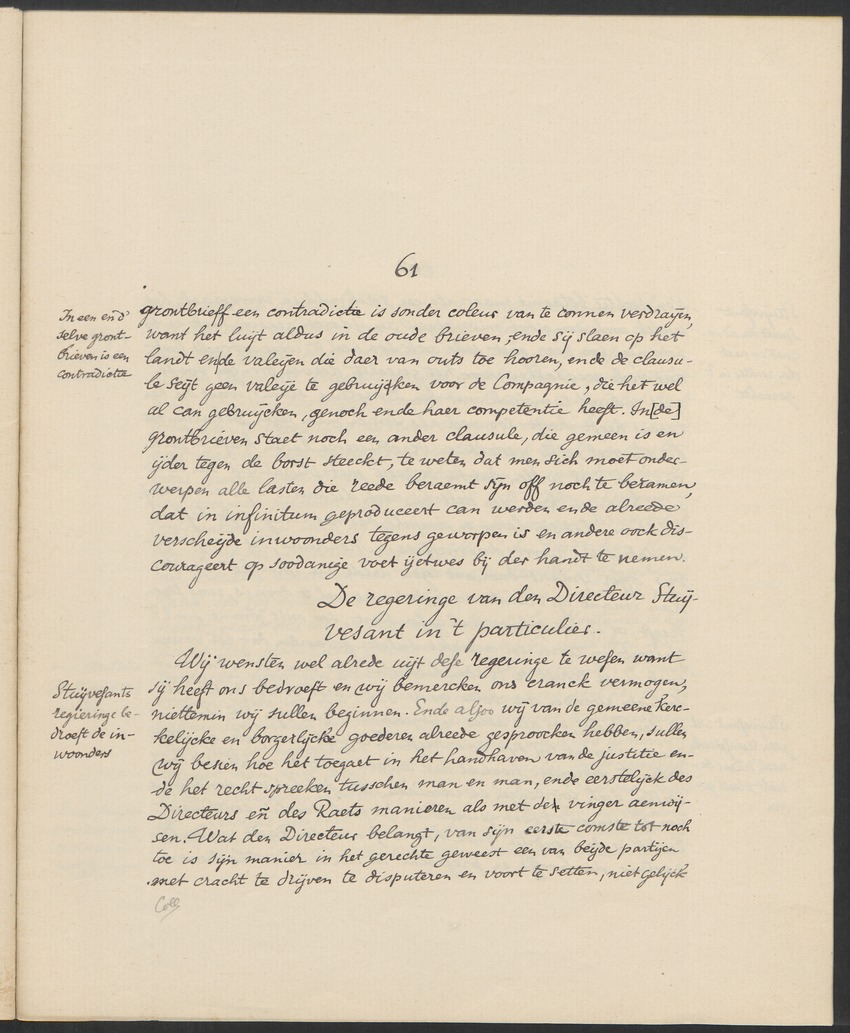 61
In een en d'
selve gront-
brieven is een
contradictie
grontbrieff een contradictie is sonder coleur van te connen verdrayen,
want het luijt aldus in de oude brieven, ende sij slaen op het
landt ende valeijen die daer van outs toe hooren, ende de clausu-
le seijt geen valeije te gebruijcken voor de Compagnie, die het wel
al can gebruijcken, genoch ende haer competentie heeft. In [de]
grontbrieven staet noch een ander clausule, die gemeen is en
ijder tegen de borst steeckt, te weten dat men sich moet onder-
werpen alle lasten die reede beraemt sijn off noch te beramen,
dat in infinitum geproduceert can werden ende alreede
verscheijde inwoonders tegens geworpen is en andere oock dis-
courageert op soodanige voet ijetwes bij der handt te nemen.
De regeringe van den Directeur Stuij-
vesant in 't particulier.
Stuijvesants
regieringe be-
droeft de in-
woonders
Wij wensten wel alrede uijt dese regeringe te wesen want
sij heeft ons bedroeft en wij bemercken ons cranck vermogen,
niettemin wij sullen beginnen. Ende alsoo wij van de gemeene kerc-
kelijcke en borgerlijcke goederen alreede gesproocken hebben, sullen
wij besien hoe het toegaet in het handhaven van de justitie en-
de het recht spreeken tusschen man en man, ende eerstelijck des
Directeurs en̄ des Raets manieren als met de vinger aenwij-
sen. Wat den Directeur belangt, van sijn eerste comste tot noch
toe is sijn manier in het gerechte geweest een van beijde partijen
met cracht te drijven te disputeren en voort te setten, niet gelijck
Coll